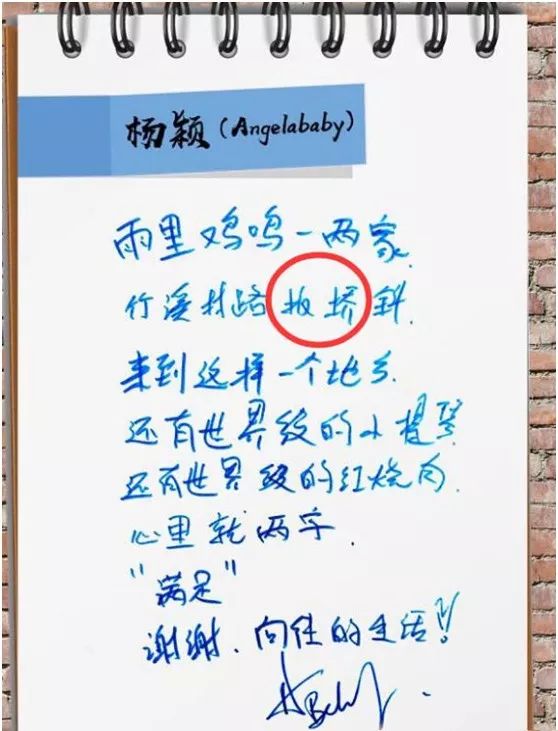 杨颖(Angelababy)
雨里鸡鸣一两家.
竹溪村路扳挢斜.
来到这样一个地方.
还有世界级的小提琴
还有世界级的红烧肉.
心里就两字.
"满足"
谢谢.向往的生活!!